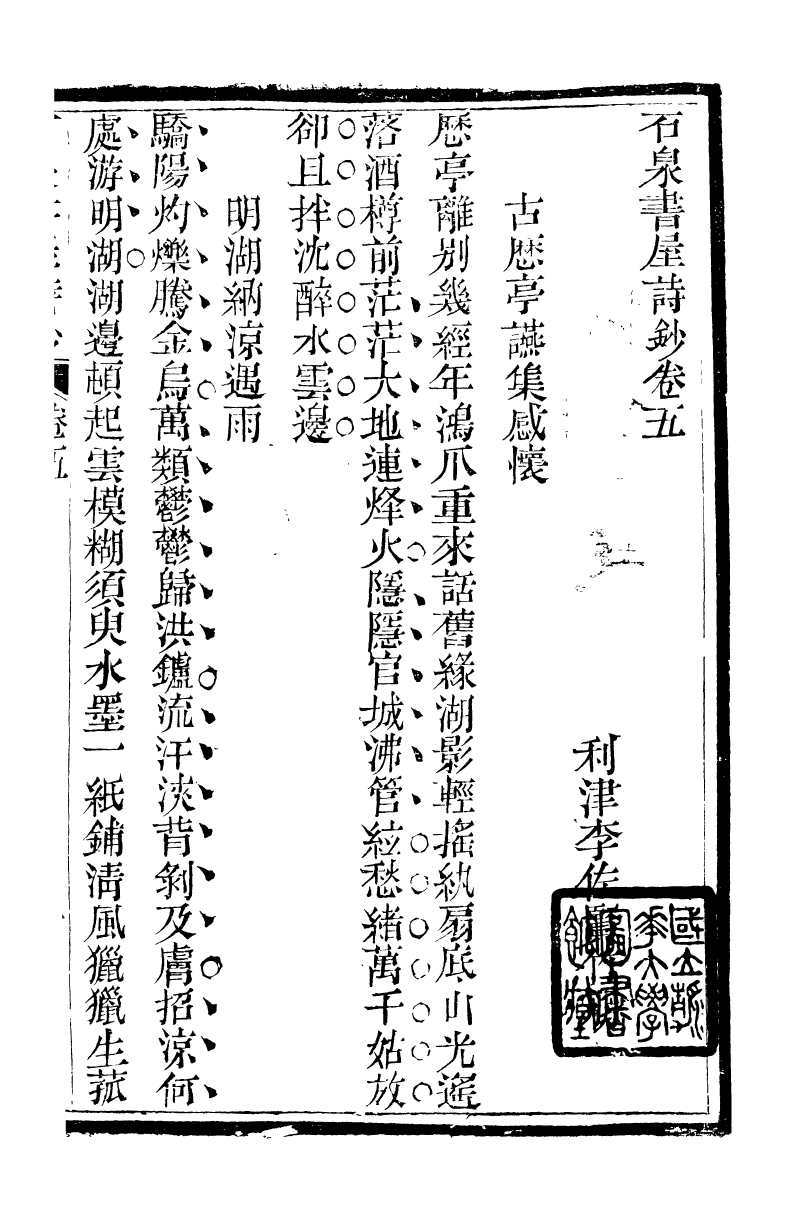 石泉書屋詩鈔卷五
利津李佐
古歴亭讌集感懷
歴亭離别幾經年鴻爪重來話舊緣湖影輕搖紈扇底山光遙
落酒樽前茫茫大地連烽火隱隱官城沸管絃愁緒萬千姑放
卻且拌沈醉水雲邊
明湖納涼遇雨
驕陽灼爍騰金烏萬類鬱鬱歸洪鑪流汗浹背剝及膚招涼何
處游明湖湖邊頓起雲模糊須臾水墨一紙鋪清風獵獵生菰
卷五